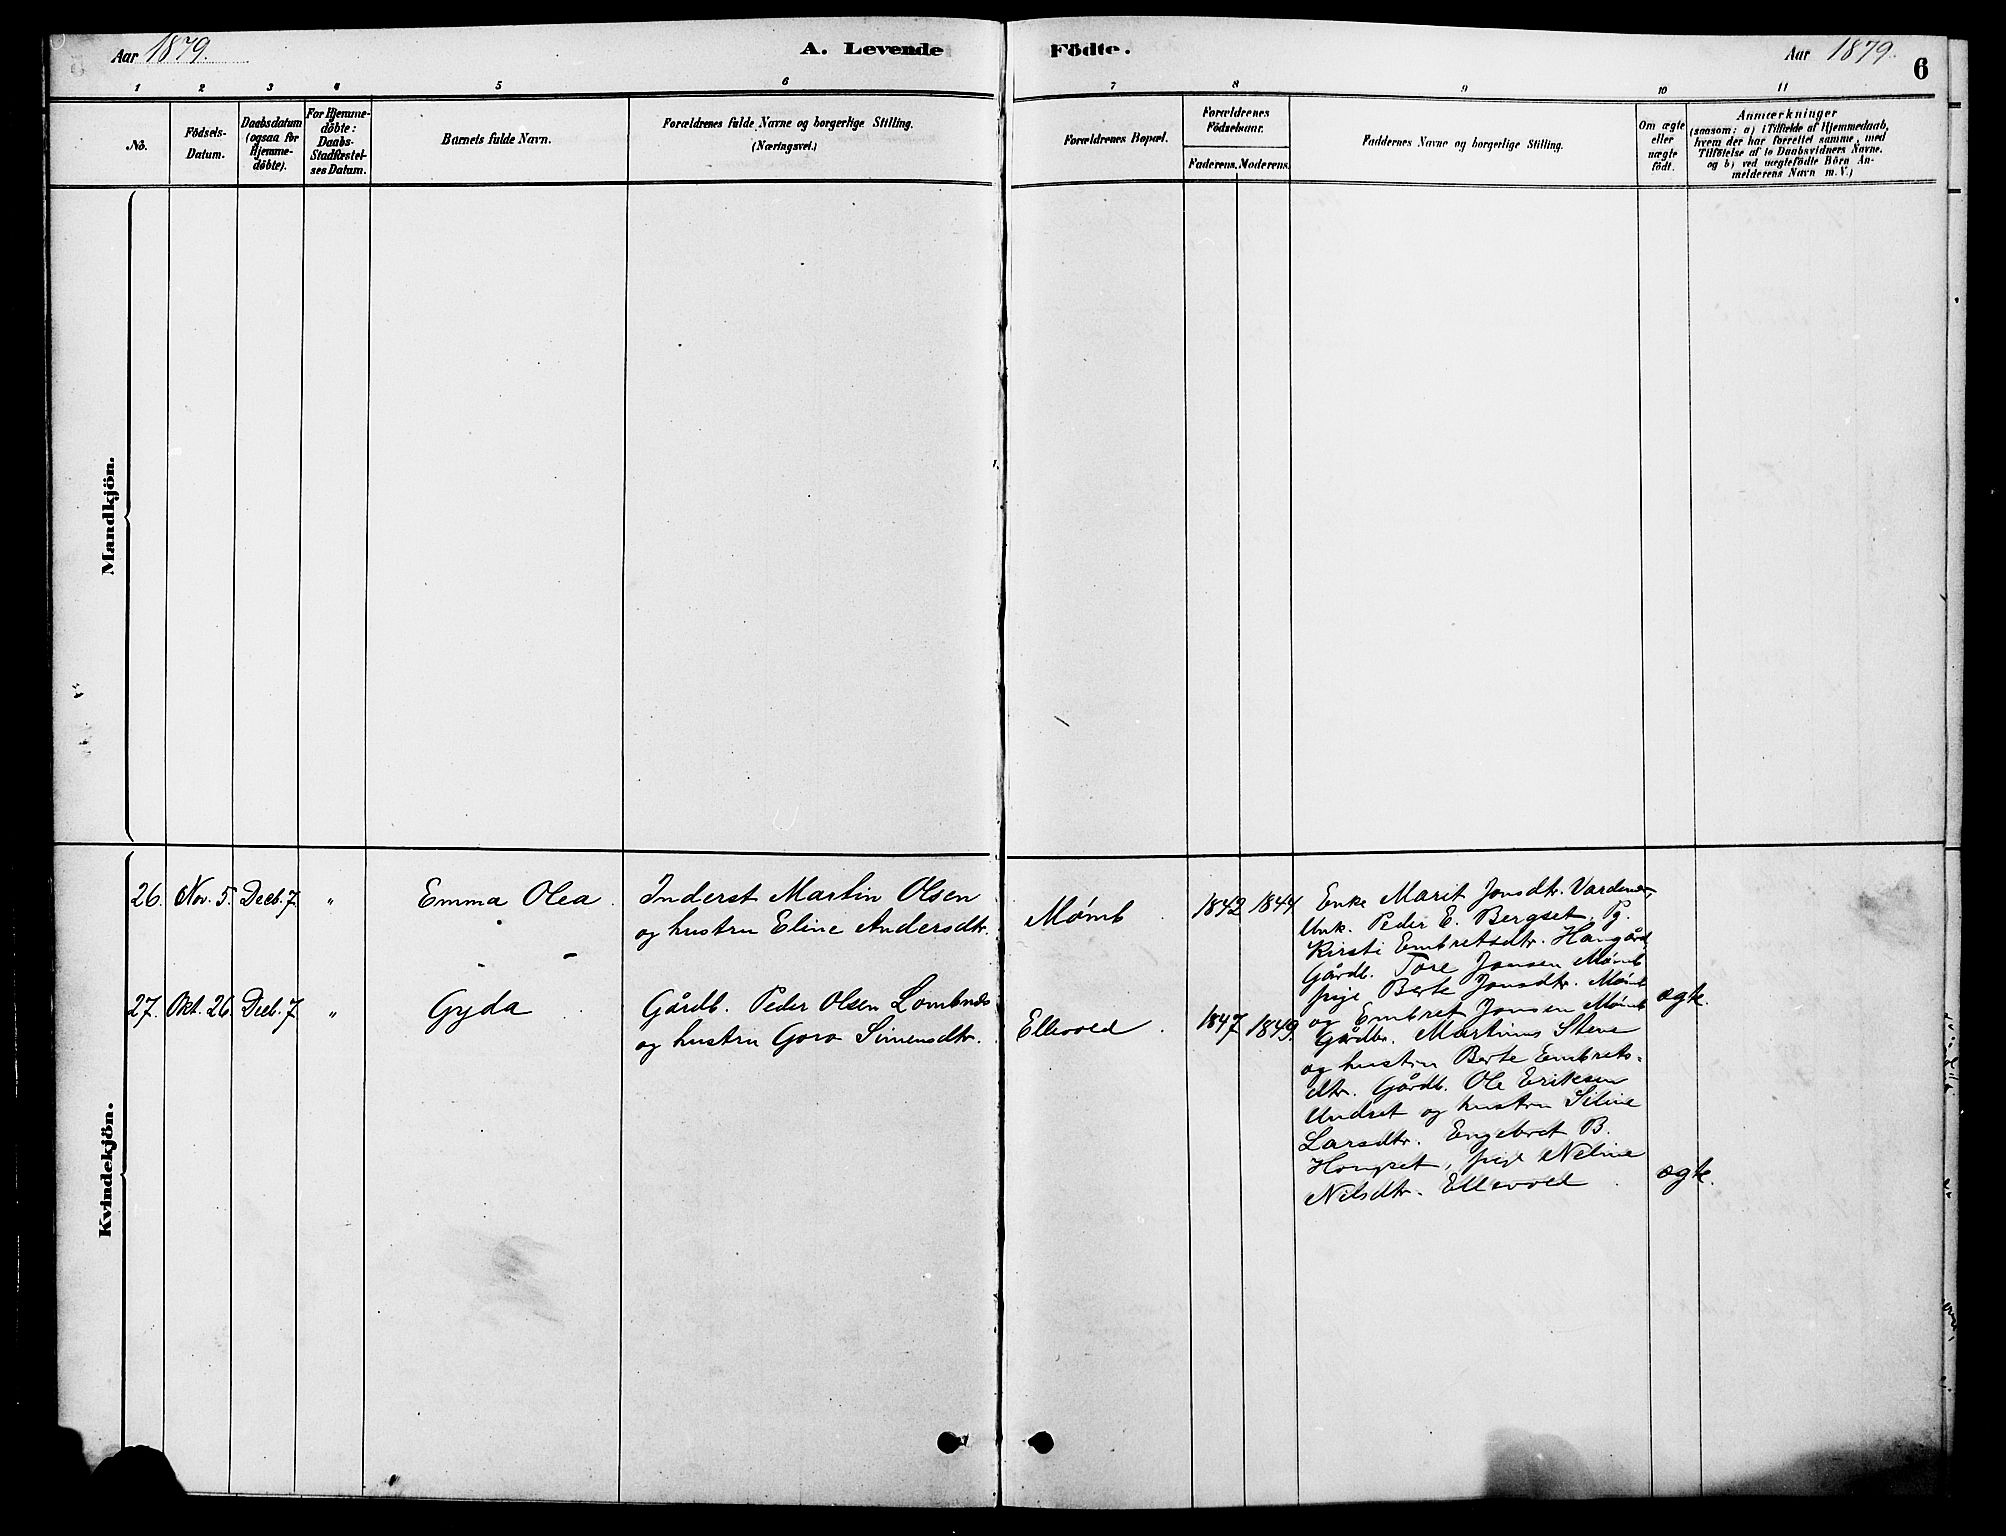 Aar 1879. A. Levende Födte. Aar 1879. 6
1 2 3 4 5 6 7 8 9 10 11
No.
Födsels-
Datum.
Daabsdatum
(ogsaa for
Hjemme-
döbte).
For Hjemme-
döbte:
Daabs-
Stadfæstel-
ses Datum.
Barnets fulde Navn.
Forældrenes fulde Navne og borgerlige Stilling.
(Næringsvei.)
Forældrenes Bopæl.
Forældrenes
Födselsaar.
Faderens. Moderens.
Faddernes Navne og borgerlige Stilling.
Om ægte
eller
uægte
født.
Anmærkninger
(saasom: a) i Tilfælde af Hjemmedaab,
hvem der har forrettet samme, med
Tilföielse af to Daabsvidners Navne,
og b) ved uægtefödte Börn An-
melderens Navn m. V.)
Mandkjön.
Kvindekjön.
26. Nov. 5. Decb. 7. " Emma Olea
Inderst Martin Olsen
og hustru Eline Andersdtr.
Mømb 1842 1844
Enke Marit Jonsdtr.
Unk. Peder E. Bergset, Pg.
Kirsti Embretsdtr. Hangård
Gårdb. Tore Jonsen Mømb
pige Berte Jonsdtr. Mømb
og Embret Jonsen Mømb
ægte.
27. Okt. 26. Decb. 7. " Gyda
Gårdb. Peder Olsen Lombnæs
og hustru Goro Simensdtr.
Ellevold 1847 1849.
Gårdbr. Martinus Stene
og hustru Berte Embrets-
dtr. Gårdb. Ole Eriksen
Undset og hustru Siline
Larsdtr. Engebret B.
Hongset, pige Neline
Nilsdtr. Ellevold
ægte.